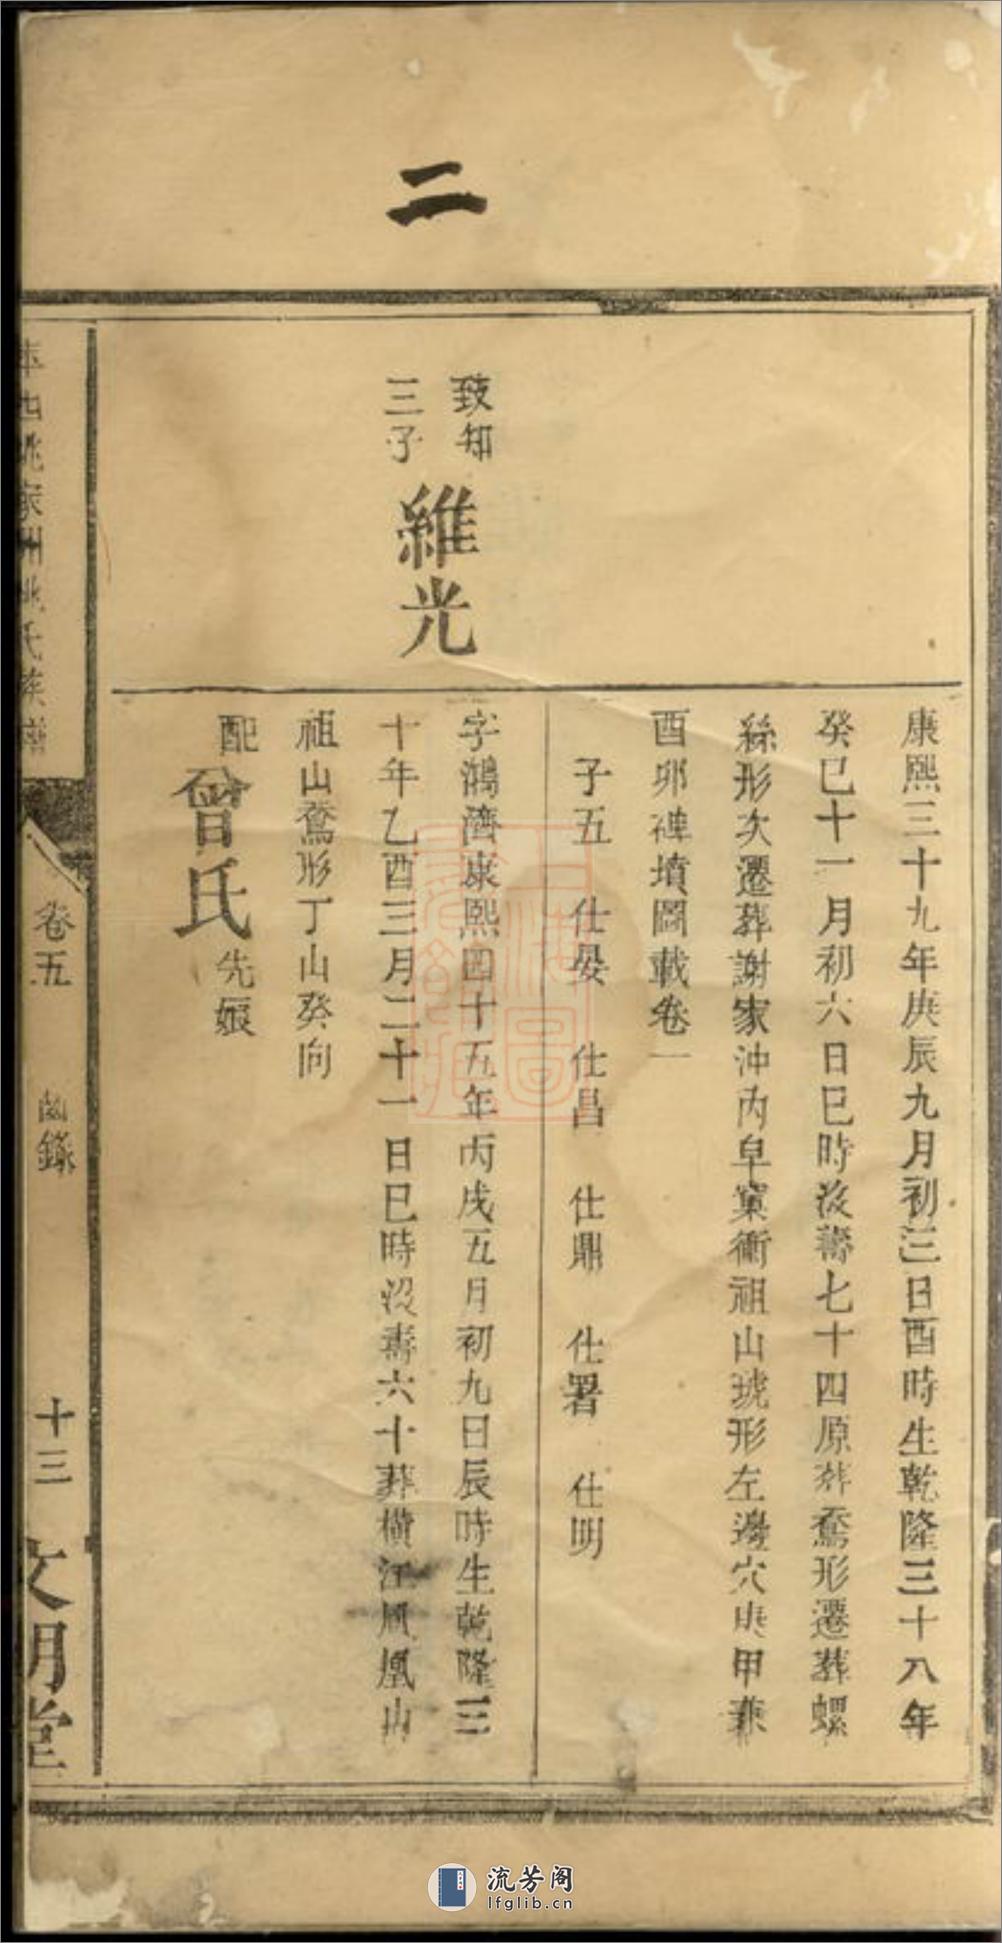 二
康熙三十九年庚辰九月初三日酉時生乾隆三十八年
癸巳十一月初六日巳時没壽七十四原葬鵞形遷葬螺
絲形次遷葬謝家沖內皐窠衝祖山琥形左邊穴庚甲兼
酉卯碑墳圖載卷一
子五 仕晏 仕昌 仕鼎 仕署 仕明
致知
三子
維光
字鴻濟康熙四十五年丙戌五月初九日辰時生乾隆三
十年乙酉三月二十一日巳時没壽六十葬橫江鳳凰山
祖山鵞形丁山癸向
配曾氏先娠
姚家州姚氏族譜
卷五
齒錄
十三
文明堂
流芳阁
lfglib.cn